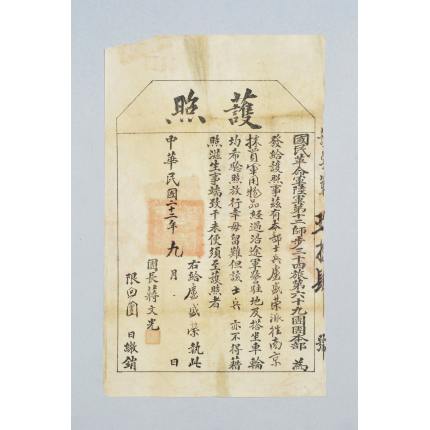 護照
國民革命軍陸軍第十二師步三十四旅第六十九團團本部 為
發給護照事茲有本部士兵盧盛榮派往南京
採買軍用物品經過沿途軍警駐地及搭坐車輪
均希驗照放行幸毋留難但該士兵亦不得藉
照滋生事端致干未便須至護照者
右給盧盛榮執此
中華民國二十二年九月 日
團長蔣文光
限回團日繳銷
號